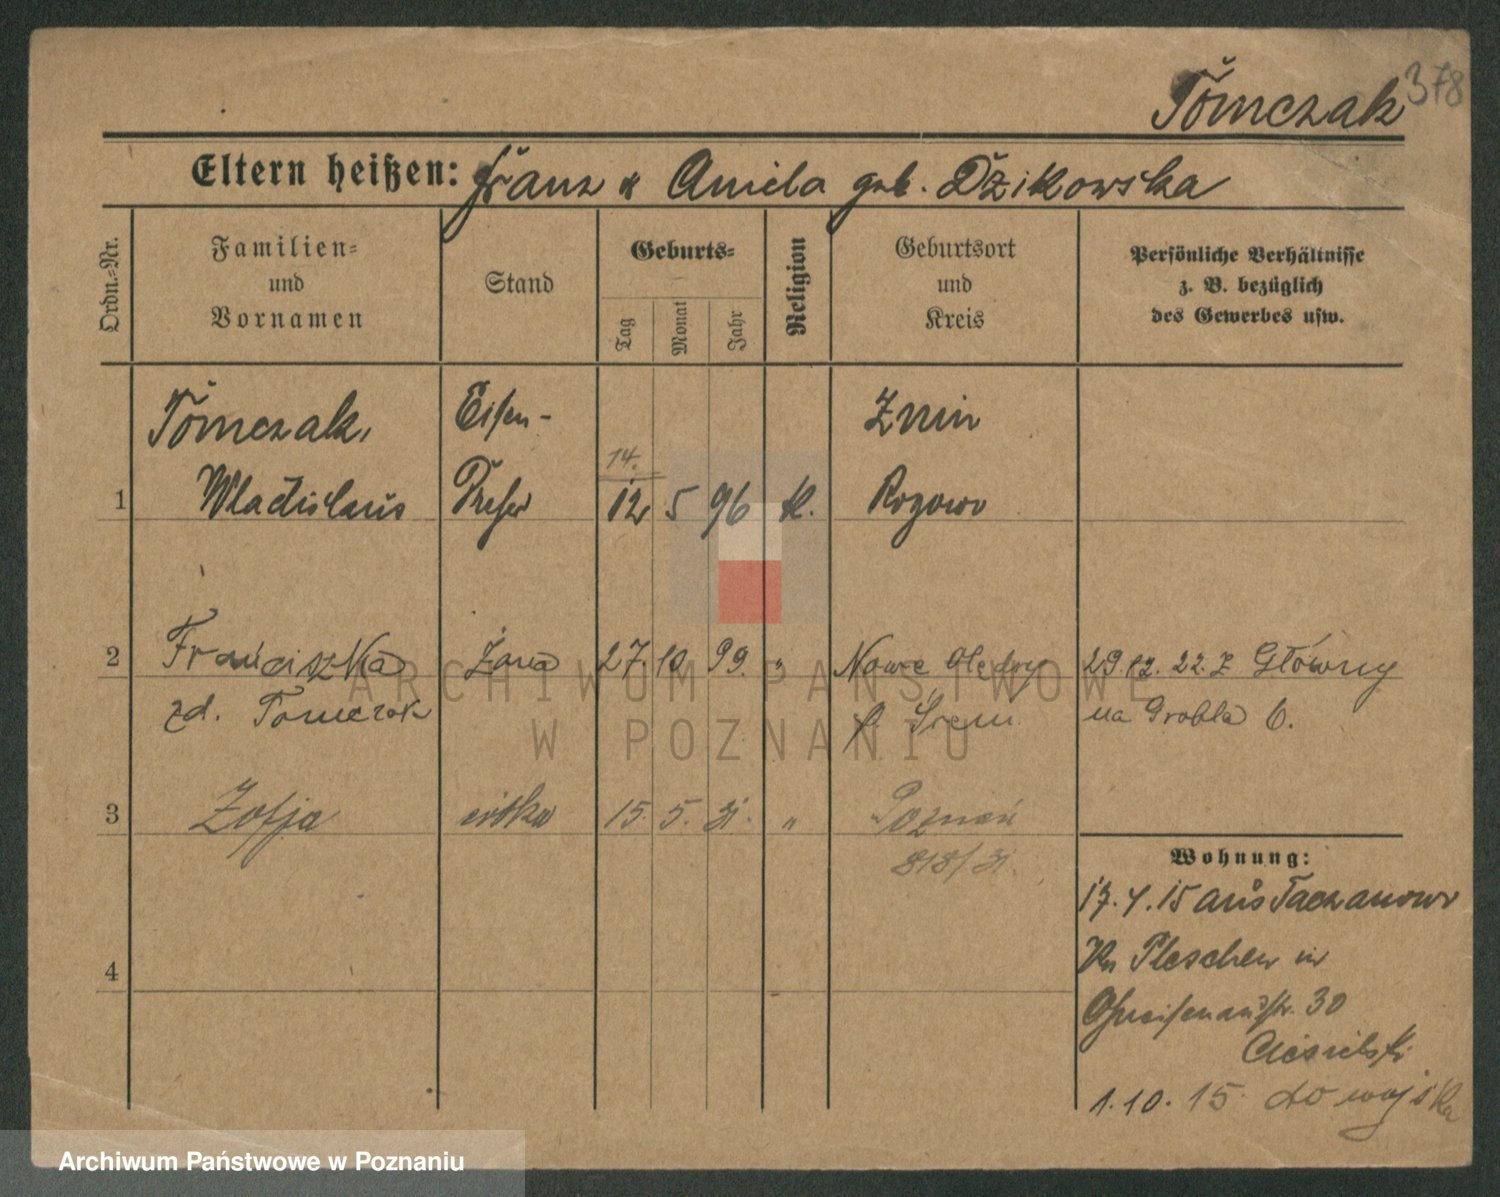 378
Tomczak
Eltern heißen: Franz & Aniela geb. Dzikowska
Ordn.=Nr.
Familien=
und
Vornamen
Stand
Geburts=
Tag
Monat
Jahr
Religion
Geburtsort
und
Kreis
Persönliche Verhältnisse
z. B. bezüglich
des Gewerbes usw.
Tomczak, Eisen- Znin
14.
1 Wladislaus 12 5 96 k. Rogowo
2 Franciszka Żona 27. 10 99. " Nowe Olędry 29.12.22. z Główny
zd. Tomczak Śrem na Grobla 6.
3 Zofja córka 15. 5. 31. " Poznań
818/31.
4
Wohnung:
17.4.15 aus Taczanowo
Kr. Pleschen in
Gneisenaustr. 30
Ciesielski
1.10.15. do wojska
ARCHIWUM PAŃSTWOWE
W POZNANIU
Archiwum Państwowe w Poznaniu